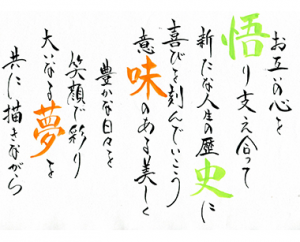 お互いの心を
悟り支え合って
新たな人生の歴史に
喜びを刻んでいこう
意味のある美しく
豊かな日々を
笑顔で彩り
大いなる夢を
共に描きながら